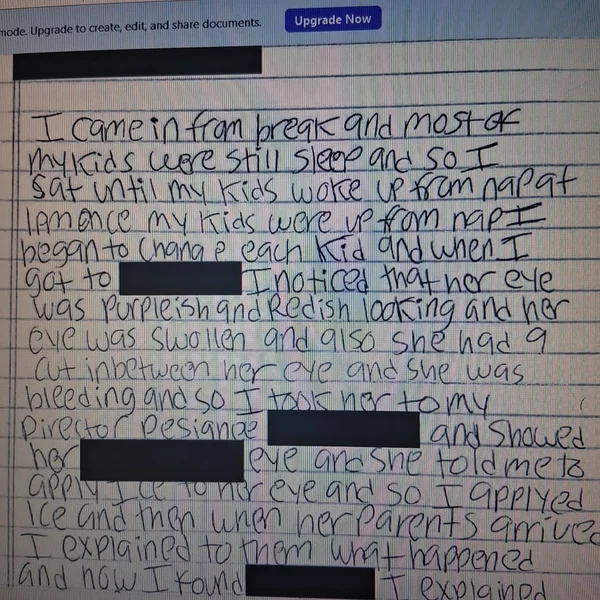 mode. Upgrade to create, edit, and share documents. Upgrade Now
I came in from break and most of
my kids were still sleep and so I
sat until my kids woke up from nap at
1pm once my kids were up from nap I
began to change each kid and when I
got to I noticed that her eye
was purpleish and Redish looking and her
eye was swollen and also she had a
cut inbetween her eye and she was
bleeding and so I took her to my
Director Designee and showed
her eye and she told me to
apply Ice to her eye and so I applyed
Ice and then when her parents arrived
I explained to them what happened
and how I found I explained